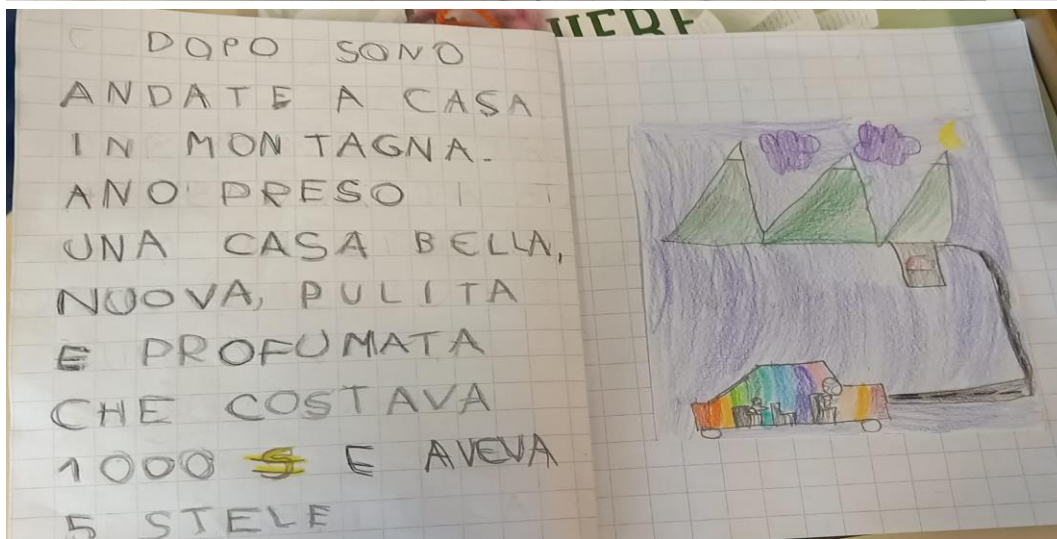 DOPO SONO
ANDATE A CASA
IN MONTAGNA.
ANO PRESO
UNA CASA BELLA,
NUOVA, PULITA
E PROFUMATA
CHE COSTAVA
1000 $ E AVEVA
5 STELE